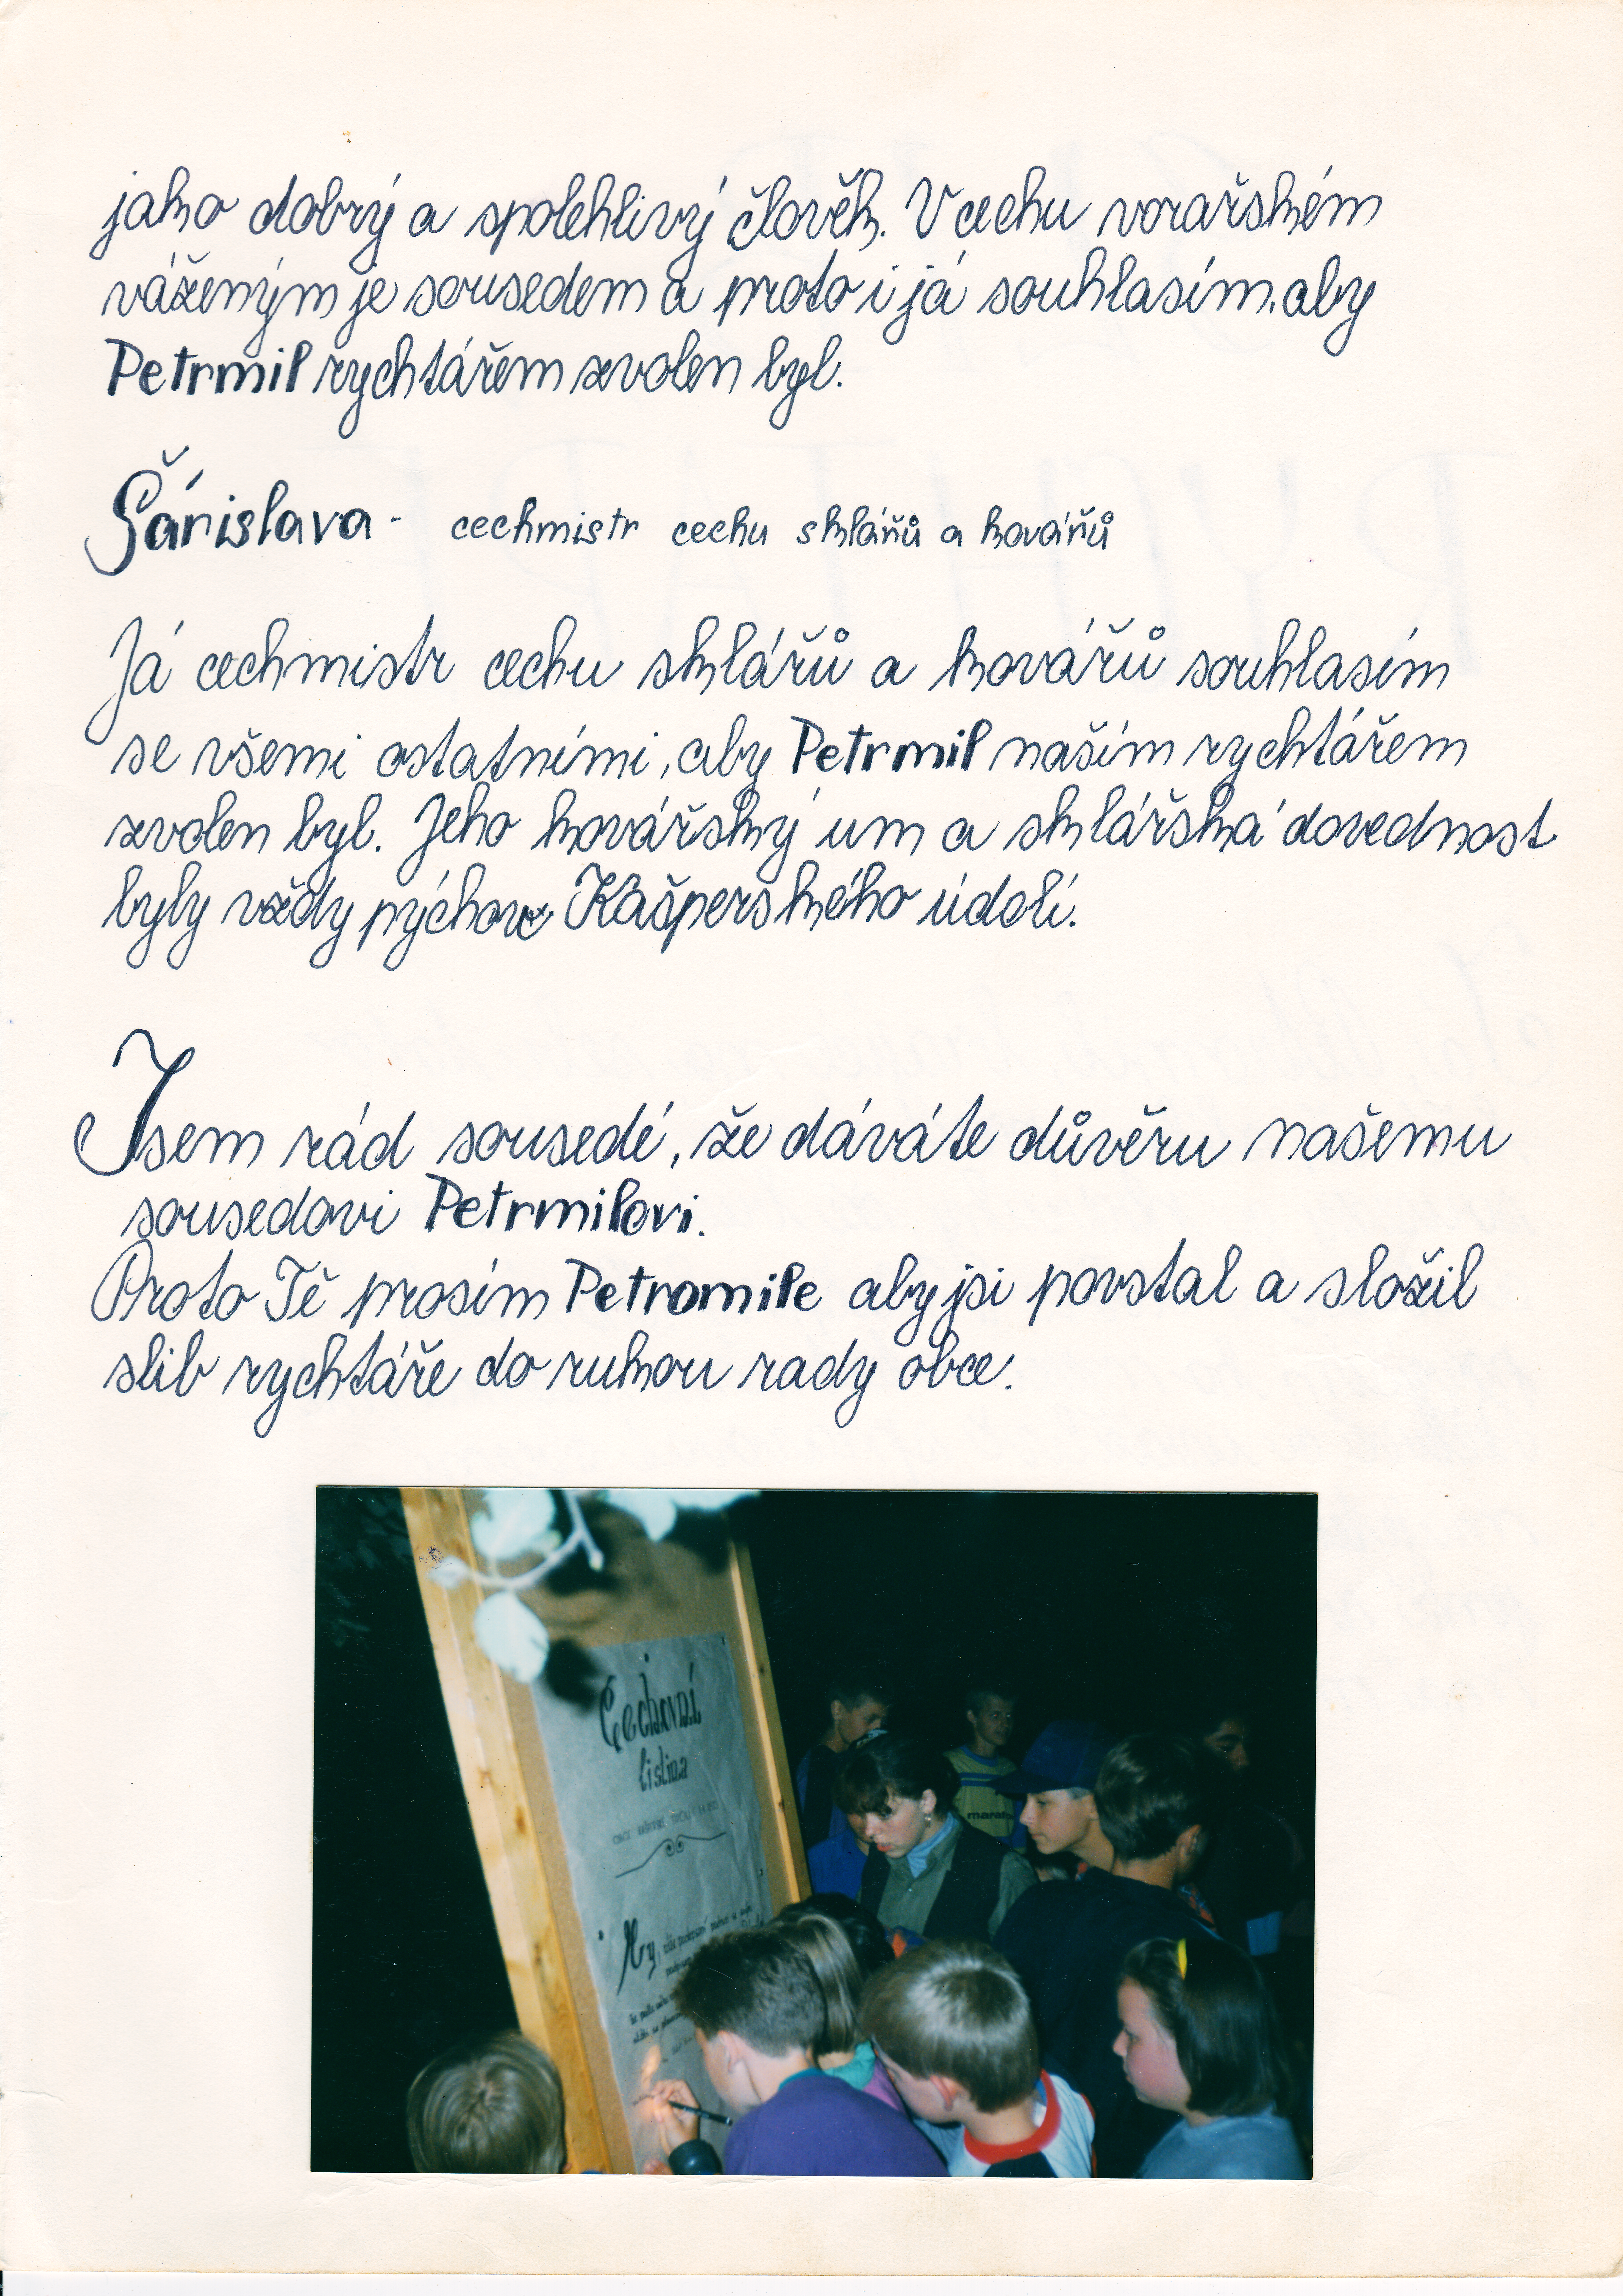 jako dobrý a spolehlivý člověk. V cechu vorařském
váženým je sousedem a proto i já souhlasím, aby
Petrmil rychtářem zvolen byl.
Šárislava - cechmistr cechu sklářů a kovářů
Já cechmistr cechu sklářů a kovářů souhlasím
se všemi ostatními, aby Petrmil naším rychtářem
zvolen byl. Jeho kovářský um a sklářská dovednost
byly vždy pýchou Kašperského údolí.
Jsem rád sousedé, že dáváte důvěru našemu
sousedovi Petrmilovi.
Proto Tě prosím Petromile aby jsi povstal a složil
slib rychtáře do rukou rady obce.
Cechovní
listina
My,